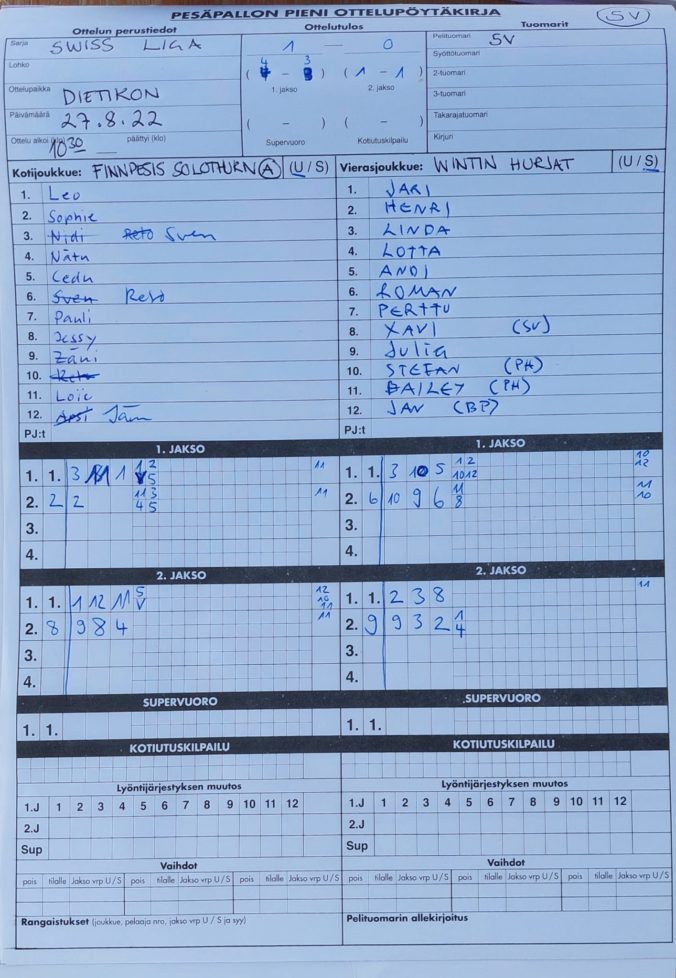 PESÄPALLON PIENI OTTELUPÖYTÄKIRJA
SV
Ottelun perustiedot Ottelutulos Tuomarit
Sarja SWISS LIGA 1 — 0 Pelituomari SV
Lohko Syöttötuomari
( 4 – 3 ) ( 1 – 1 ) 2-tuomari
Ottelupaikka DIETIKON 1. jakso 2. jakso 3-tuomari
Päivämäärä 27.8.22 ( – ) ( – ) Takarajatuomari
Ottelu alkoi (klo) 10 30 päättyi (klo) Supervuoro Kotiutuskilpailu Kirjuri
Kotijoukkue: FINNPESIS SOLOTHURN A (U / S) Vierasjoukkue: WINTIN HURJAT (U / S)
1. Leo 1. JARI
2. Sophie 2. HENRI
3. Nidi Reto Sven 3. LINDA
4. Nätu 4. LOTTA
5. Cedu 5. ANDI
6. Sven Reto 6. ROMAN
7. Pauli 7. PERTTU
8. Jessy 8. XAVI (SV)
9. Zäni 9. Julia
10. Reto 10. STEFAN (PH)
11. Loïc 11. BAILEY (PH)
12. Jäm 12. JAN (BP)
PJ:t PJ:t
1. JAKSO 1. JAKSO
1. 1. 3 11 1 2 5 11 1. 1. 3 10 5 1 2 10 12 10 12
2. 2 2 11 3 4 5 11 2. 6 10 9 6 11 8 11 10
3. 3.
4. 4.
2. JAKSO 2. JAKSO
1. 1. 1 12 11 5 V 12 10 11 1. 1. 2 3 8 11
2. 8 9 8 4 11 2. 9 9 3 2 1 4
3. 3.
4. 4.
SUPERVUORO SUPERVUORO
1. 1. 1. 1.
KOTIUTUSKILPAILU KOTIUTUSKILPAILU
Lyöntijärjestyksen muutos Lyöntijärjestyksen muutos
1.J 1 2 3 4 5 6 7 8 9 10 11 12 1.J 1 2 3 4 5 6 7 8 9 10 11 12
2.J 2.J
Sup Sup
Vaihdot Vaihdot
pois tilalle Jakso vrp U / S pois tilalle Jakso vrp U / S pois tilalle Jakso vrp U / S pois tilalle Jakso vrp U / S pois tilalle Jakso vrp U / S pois tilalle Jakso vrp U / S
Rangaistukset (joukkue, pelaaja nro, jakso vrp U / S ja syy) Pelituomarin allekirjoitus